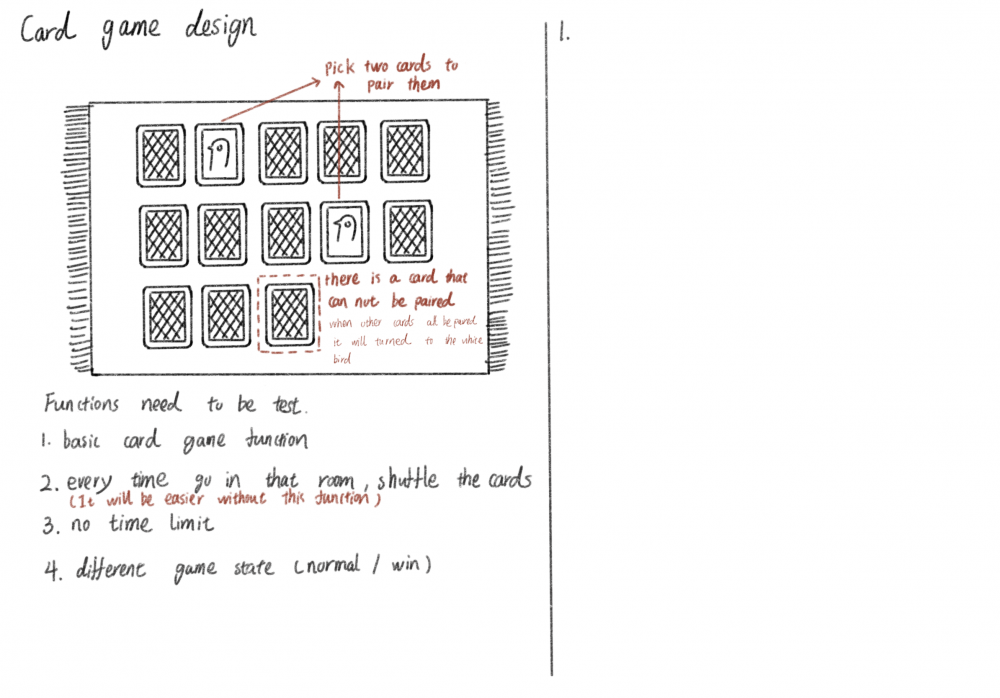 Card game design
pick two cards to
pair them
there is a card that
can not be paired
when other cards all be pared
it will turned to the white
bird
Functions need to be test.
1. basic card game function
2. every time go in that room, shuttle the cards
(It will be easier without this function)
3. no time limit
4. different game state (normal / win)
1.